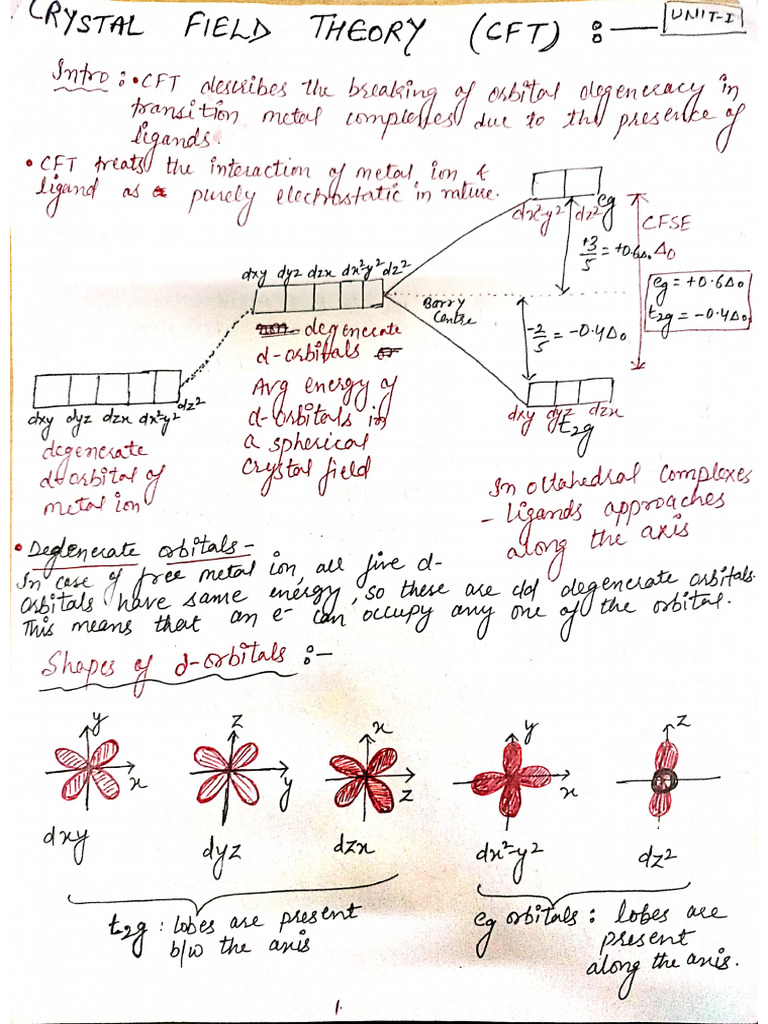 CRYSTAL FIELD THEORY (CFT) :—
UNIT-I
Intro : • CFT describes the breaking of orbital degeneracy in
transition metal complexes due to the presence of
ligands.
• CFT treats the interaction of metal ion &
ligand as purely electrostatic in nature.
dx²-y² dz² eg
CFSE
+3/5 = +0.6Δo
Δo
eg = +0.6Δo
t2g = -0.4Δo
dxy dyz dzx dx²-y² dz²
Barry
Centre
-2/5 = -0.4Δo
degenerate
d-orbitals
Avg energy of
d-orbitals in
a spherical
crystal field
dxy dyz dzx dx²-y² dz²
degenerate
d-orbital of
metal ion
dxy dyz dzx
t2g
In octahedral complexes
- ligands approaches
along the axis
• Deglenerate orbitals -
In case of free metal ion, all five d-
orbitals have same energy, so these are degenerate orbitals.
This means that an e- can occupy any one of the orbital.
Shapes of d-orbitals :—
y
x
z
y
x
z
y
x
z
dxy
dyz
dzx
dx²-y²
dz²
t2g : lobes are present
b/w the axis
eg orbitals : lobes are
present
along the axis.
1.